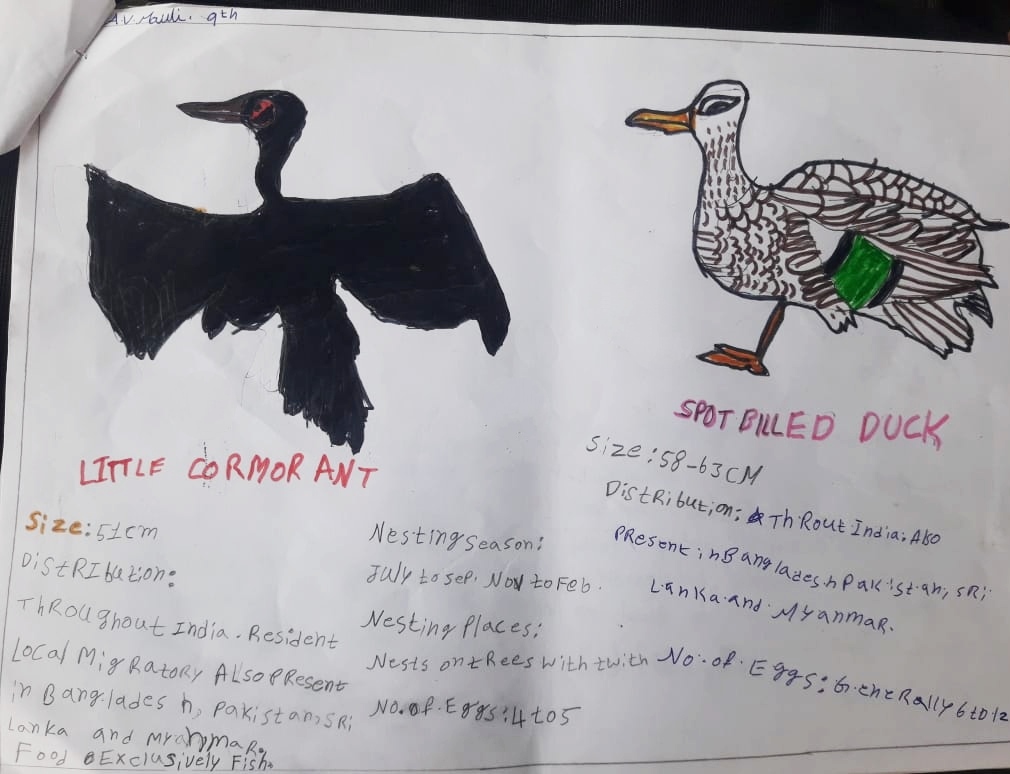 A.V. Mauli. 9th
LITTLE CORMORANT
Size: 51cm
DistRIbution:
ThROughout India. Resident
Local MigRatoRy Also PResent
in Bangladesh, Pakistan, SRi
Lanka and MyanmaR.
Food Exclusively Fish.
Nesting Season:
July to Sep. Nov to Feb.
Nesting Places:
Nests on tRees with twith
No. of. Eggs: 4 to 5
SPOT BILLED DUCK
Size: 58-63CM
DistRibution: ThRout India. Also
PResent in Bangladesh Pakistan, SRi
Lanka and MyanmaR.
No. of. Eggs: GeneRally 6 to 12